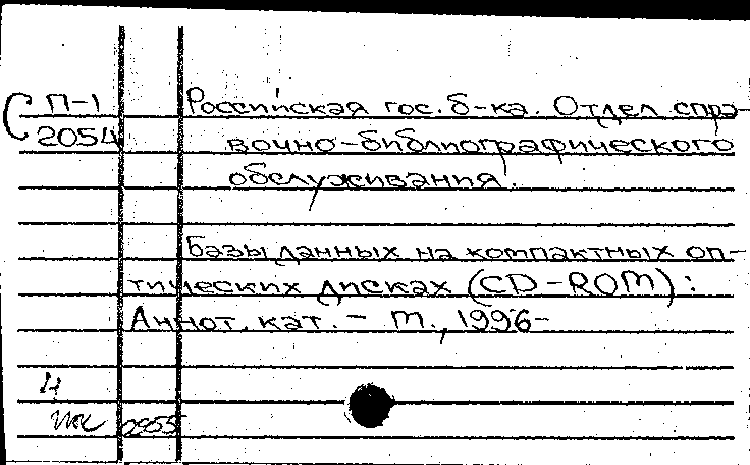 С П-1 Российская гос. б-ка. Отдел спра-
2054 вочно-библиографического
обслуживания.
Базы данных на компактных оп-
тических дисках (CD-ROM):
Аннот. кат. - М., 1996-
0955